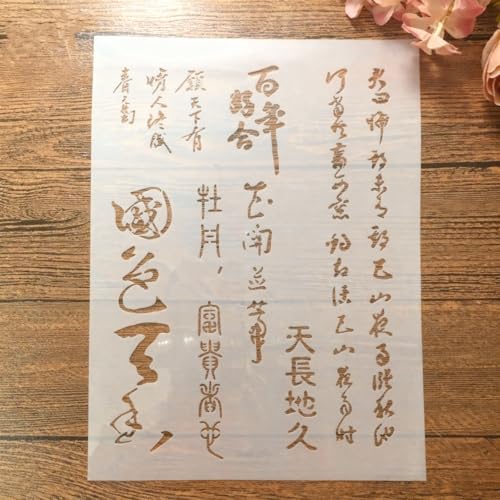 君问归期未有期巴山夜雨涨秋池
何当共剪西窗烛却话巴山夜雨时
天長地久
百年
好合
花開並蒂
願天下有
情人終成
眷屬
牡丹，
富貴者也
國色天香，